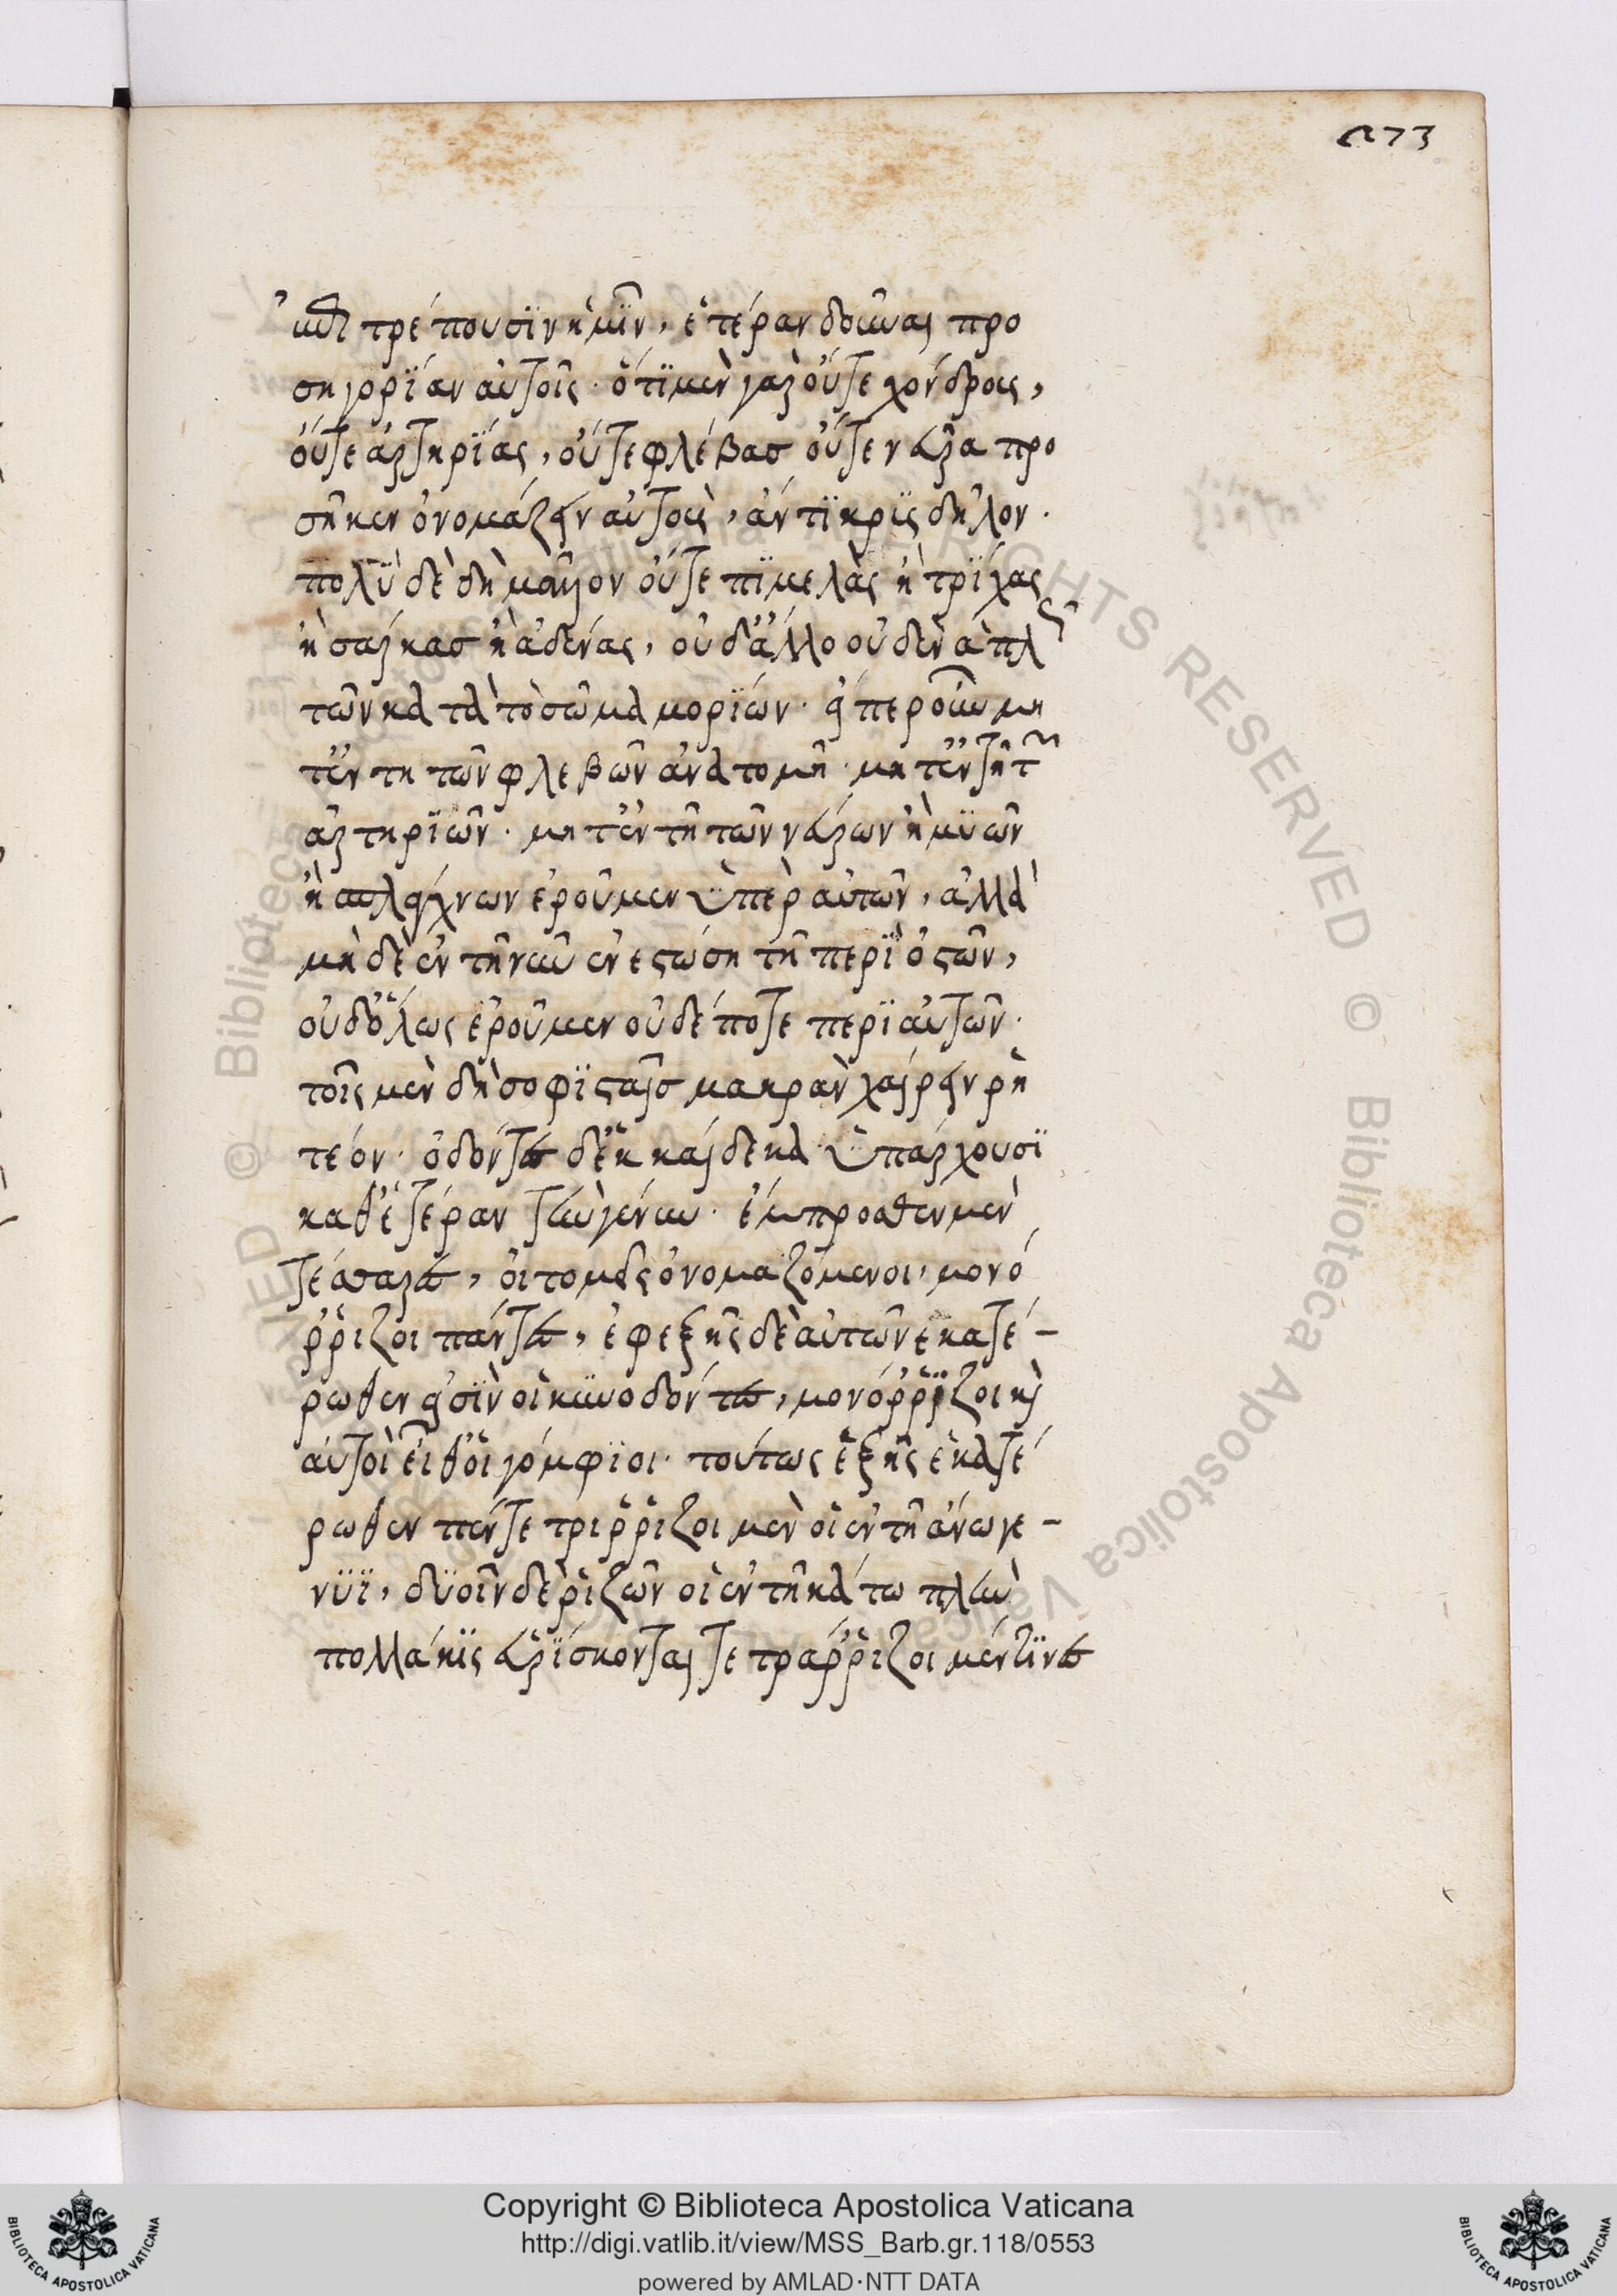 273
ἐπιτρέπουσιν ἡμῖν, ἑτέραν δοῦναι προ
σηγορίαν αὐτοῖς· ὅτι μὲν γὰρ οὔτε χόνδρους,
οὔτε ἀρτηρίας, οὔτε φλέβας οὔτε νεῦρα προ
σῆκεν ὀνομάζειν αὐτοὺς, ἄντικρυς δῆλον·
πολὺ δὲ δὴ μᾶλλον οὔτε πιμελὰς ἢ τρίχας
ἢ σάρκας ἢ ἀδένας, οὐδ' ἄλλο οὐδὲν ἁπλῶς
τῶν κατὰ τὸ σῶμα μορίων· εἴπερ οὖν μή
τ' ἐν τῇ τῶν φλεβῶν ἀνατομῇ· μήτ' ἐν τῇ τῶν
ἀρτηριῶν· μήτ' ἐν τῇ τῶν νεύρων ἢ μυῶν
ἢ σπλάγχνων ἐροῦμεν ὑπὲρ αὐτῶν, ἀλλὰ
μηδὲ ἐν τῇ νῦν ἐνεστώσῃ τῇ περὶ ὀστῶν,
οὐδ' ὅλως ἐροῦμεν οὐδέποτε περὶ αὐτῶν·
τοῖς μὲν δὴ σοφισταῖς μακρὰν χαίρειν ῥη
τέον· ὀδόντες δ' ἑκκαίδεκα ὑπάρχουσι
καθ' ἑτέραν τὴν γένυν· ἔμπροσθεν μὲν
τέσσαρες, οἱ τομεῖς ὀνομαζόμενοι, μονό
ρριζοι πάντες, ἐφεξῆς δὲ αὐτῶν ἑκατέ-
ρωθεν εἰσὶν οἱ κυνόδοντες, μονόρριζοι καὶ
αὐτοὶ εἶθ' οἱ γόμφιοι· τούτως ἑξῆς ἑκατέ
ρωθεν πέντε τρίρριζοι μὲν οἱ ἐν τῇ ἄνω γέ-
νυϊ, δυοῖν δὲ ῥιζῶν οἱ ἐν τῇ κάτω πλὴν
πολλάκις εὑρίσκονται τετράρριζοι μέν τινες
Copyright © Biblioteca Apostolica Vaticana
http://digi.vatlib.it/view/MSS_Barb.gr.118/0553
powered by AMLAD·NTT DATA